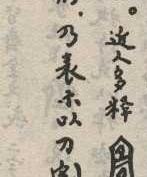 。近人多释
，乃表示以刀